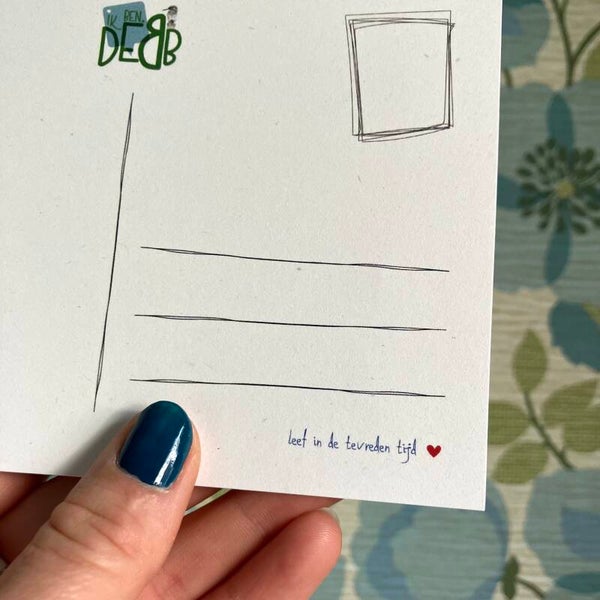 IK BEN
DEBB
leef in de tevreden tijd